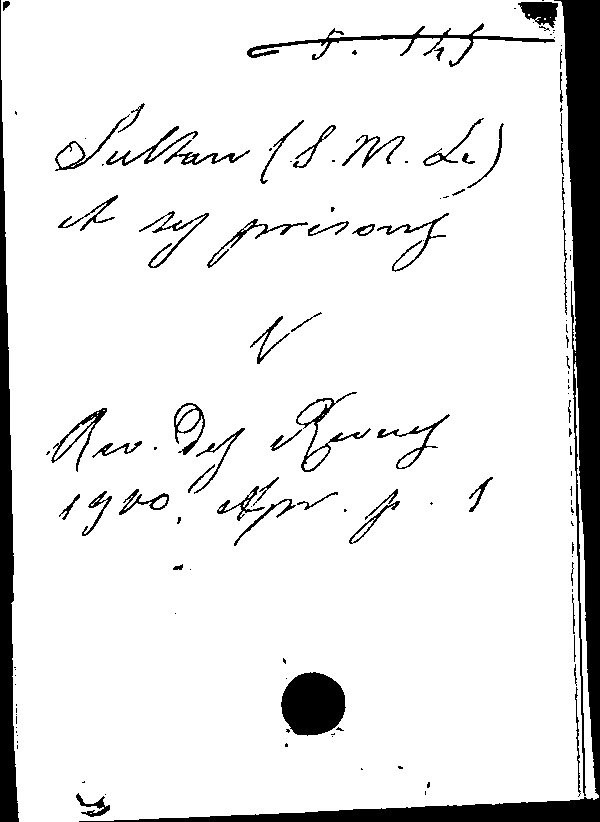 5. 145
Sultan (S. M. Le)
et ses prisons
V
Rev. Des Revues
1900, Apr. p. 1